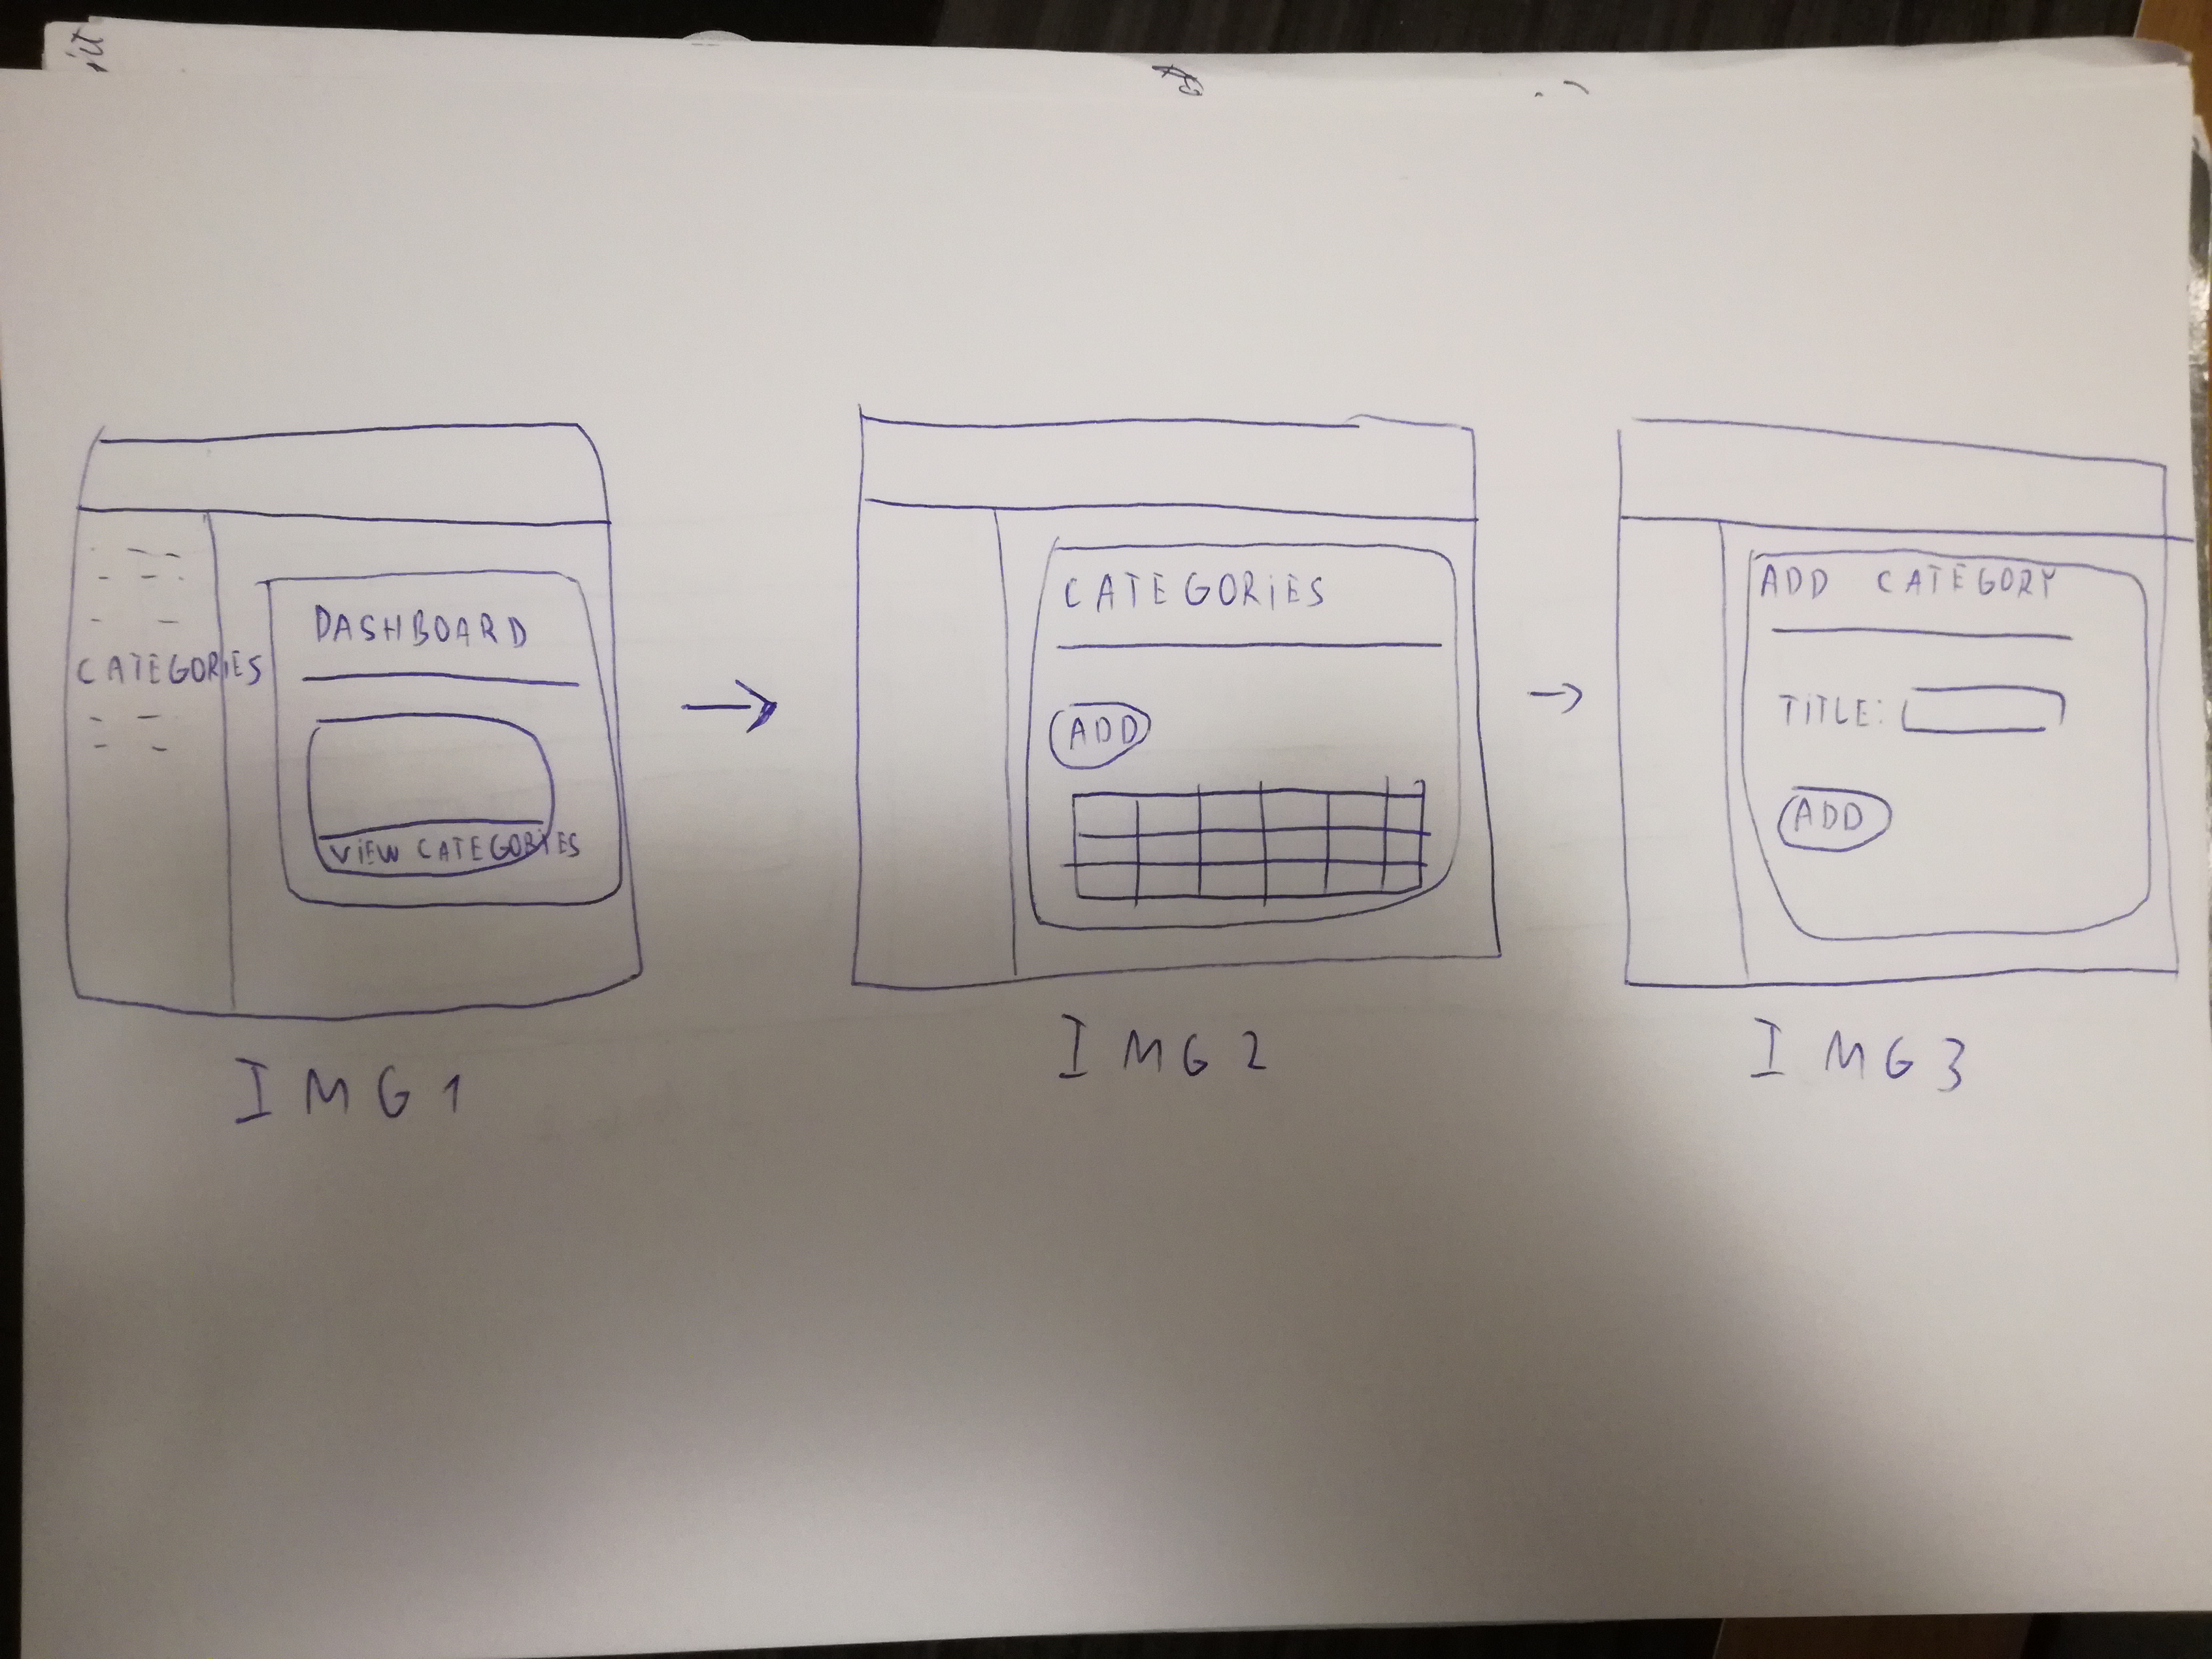 CATEGORIES
DASHBOARD
VIEW CATEGORIES
IMG1
CATEGORIES
ADD
IMG2
ADD CATEGORY
TITLE:
ADD
IMG3